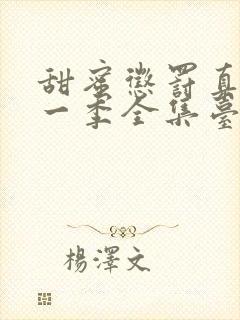 甜蜜懲罰真
一季全集臺
楊澤文